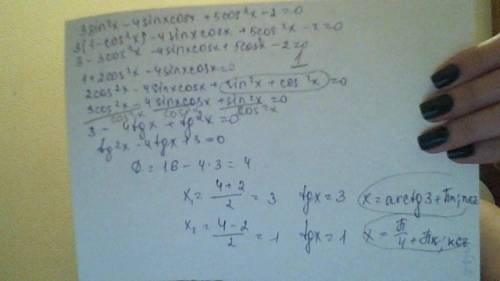 3sin²x - 4sinxcosx + 5cos²x - 2 = 0
3(1-cos²x) - 4sinxcosx + 5cos²x - 2 = 0
3 - 3cos²x - 4sinxcosx + 5cos² - 2 = 0
1
1 + 2cos²x - 4sinxcosx = 0
2cos²x - 4sinxcosx + sin²x + cos²x = 0
3cos²x - 4sinxcosx + sin²x = 0
cos²x cos²x cos²x
3 - 4tgx + tg²x = 0
tg²x - 4tgx + 3 = 0
D = 16 - 4·3 = 4
x₁ = (4+2)/2 = 3 tgx = 3 x = arctg3 + πn; n∈z
x₂ = (4-2)/2 = 1 tgx = 1 x = π/4 + πk; k∈z